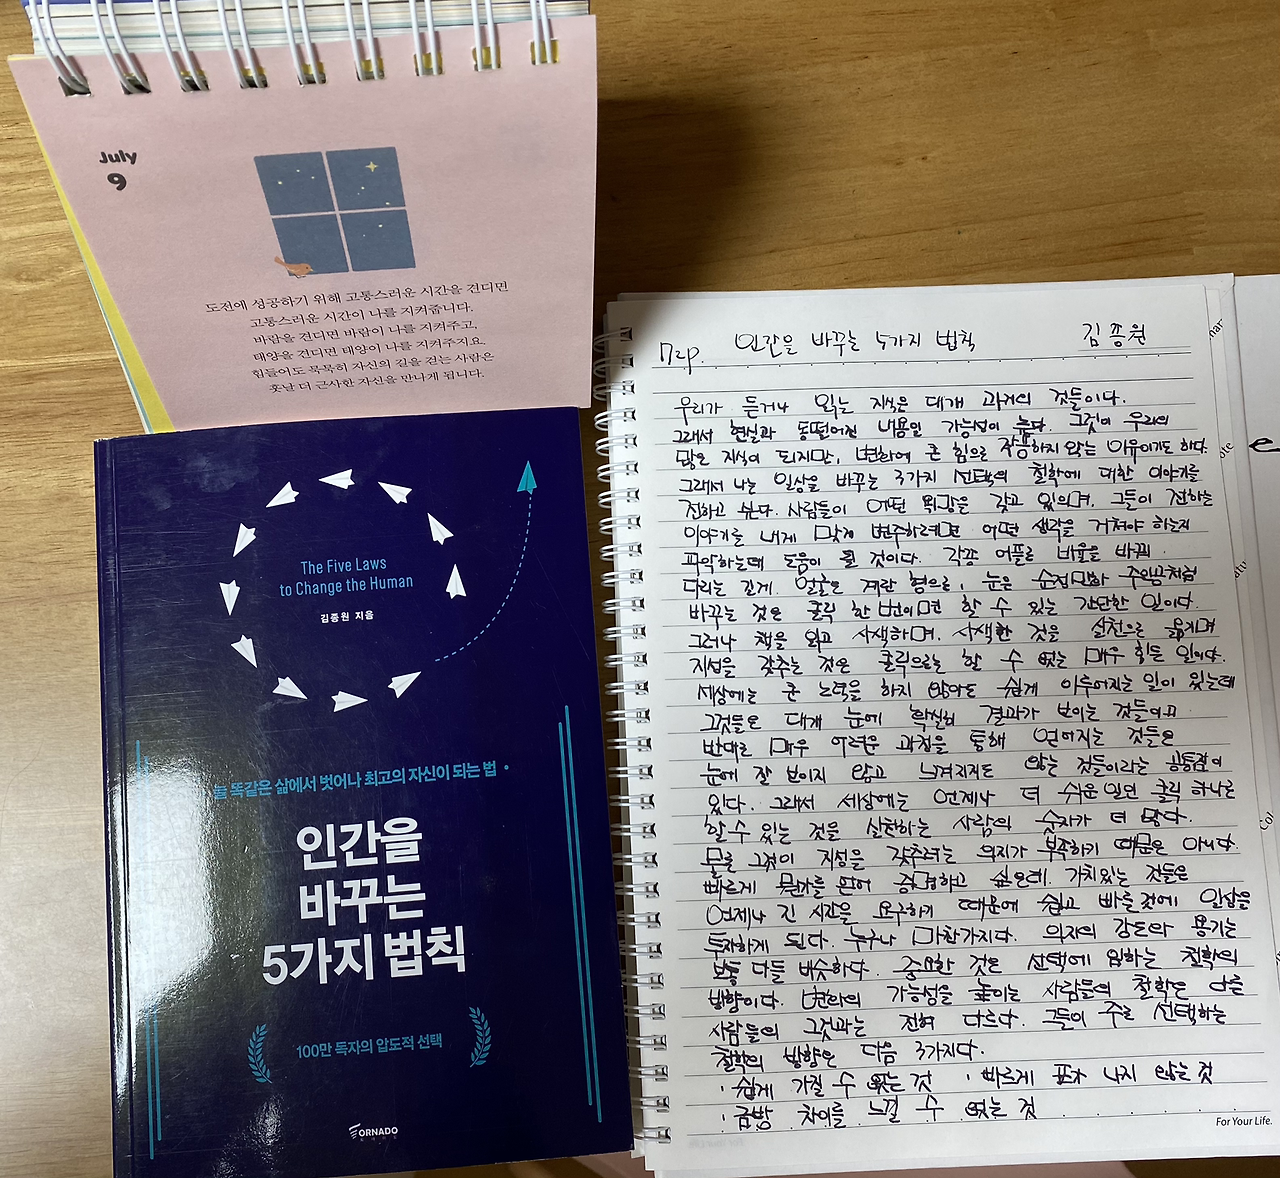 July
9
도전에 성공하기 위해 고통스러운 시간을 견디면
고통스러운 시간이 나를 지켜줍니다.
바람을 견디면 바람이 나를 지켜주고,
태양을 견디면 태양이 나를 지켜주지요.
힘들어도 묵묵히 자신의 길을 걷는 사람은
훗날 더 근사한 자신을 만나게 됩니다.
The Five Laws
to Change the Human
김종원 지음
늘 똑같은 삶에서 벗어나 최고의 자신이 되는 법
인간을
바꾸는
5가지 법칙
100만 독자의 압도적 선택
TORNADO
72p. 인간을 바꾸는 5가지 법칙 김종원
우리가 듣거나 읽는 지식은 대개 과거의 것들이다.
그래서 현실과 동떨어진 내용일 가능성이 높다. 그것이 우리의
많은 지식이 되지만, 변화에 큰 힘으로 작용하지 않는 이유이기도 하다.
그래서 나는 일상을 바꾸는 3가지 선택의 철학에 대한 이야기를
전하고 싶다. 사람들이 어떤 뭐강을 갖고 있으며, 그들이 전하는
이야기를 내게 맞게 변주하려면 어떤 생각을 거쳐야 하는지
파악하는데 도움이 될 것이다. 각종 어플로 비율을 바꿔
다리는 길게, 얼굴은 계란 형으로, 눈은 순정만화 주인공처럼
바꾸는 것은 클릭 한 번이면 할 수 있는 간단한 일이다.
그러나 책을 읽고 사색하며, 사색한 것을 실천으로 옮기며
지성을 갖추는 것은 클릭으로는 할 수 없는 매우 힘든 일이다.
세상에는 큰 노력을 하지 않아도 쉽게 이루어지는 일이 있는데
그것들은 대개 눈에 확실히 결과가 보이는 것들이고
반대로 매우 어려운 과정을 통해 얻어지는 것들은
눈에 잘 보이지 않고 느껴지지도 않는 것들이라는 공통점이
있다. 그래서 세상에는 언제나 더 쉬운 일인 클릭 하나로
할 수 있는 것을 실천하는 사람의 숫자가 더 많다.
물론 그것이 지성을 갖추려는 의지가 부족하기 때문은 아니다.
빠르게 뭔가를 얻어 증명하고 싶은데, 가치있는 것들은
언제나 긴 시간을 요구하기 때문에 쉽고 빠른 것에 일상을
투자하게 된다. 누구나 마찬가지다. 의지의 강도와 용기는
보통 다들 비슷하다. 중요한 것은 선택에 임하는 철학의
방향이다. 변화의 가능성을 높이는 사람들의 철학은 다른
사람들의 그것과는 전혀 다르다. 그들이 주로 선택하는
철학의 방향은 다음 3가지다.
· 쉽게 가질 수 없는 것 · 빠르게 표가 나지 않는 것
· 금방 차이를 느낄 수 없는 것
For Your Life.